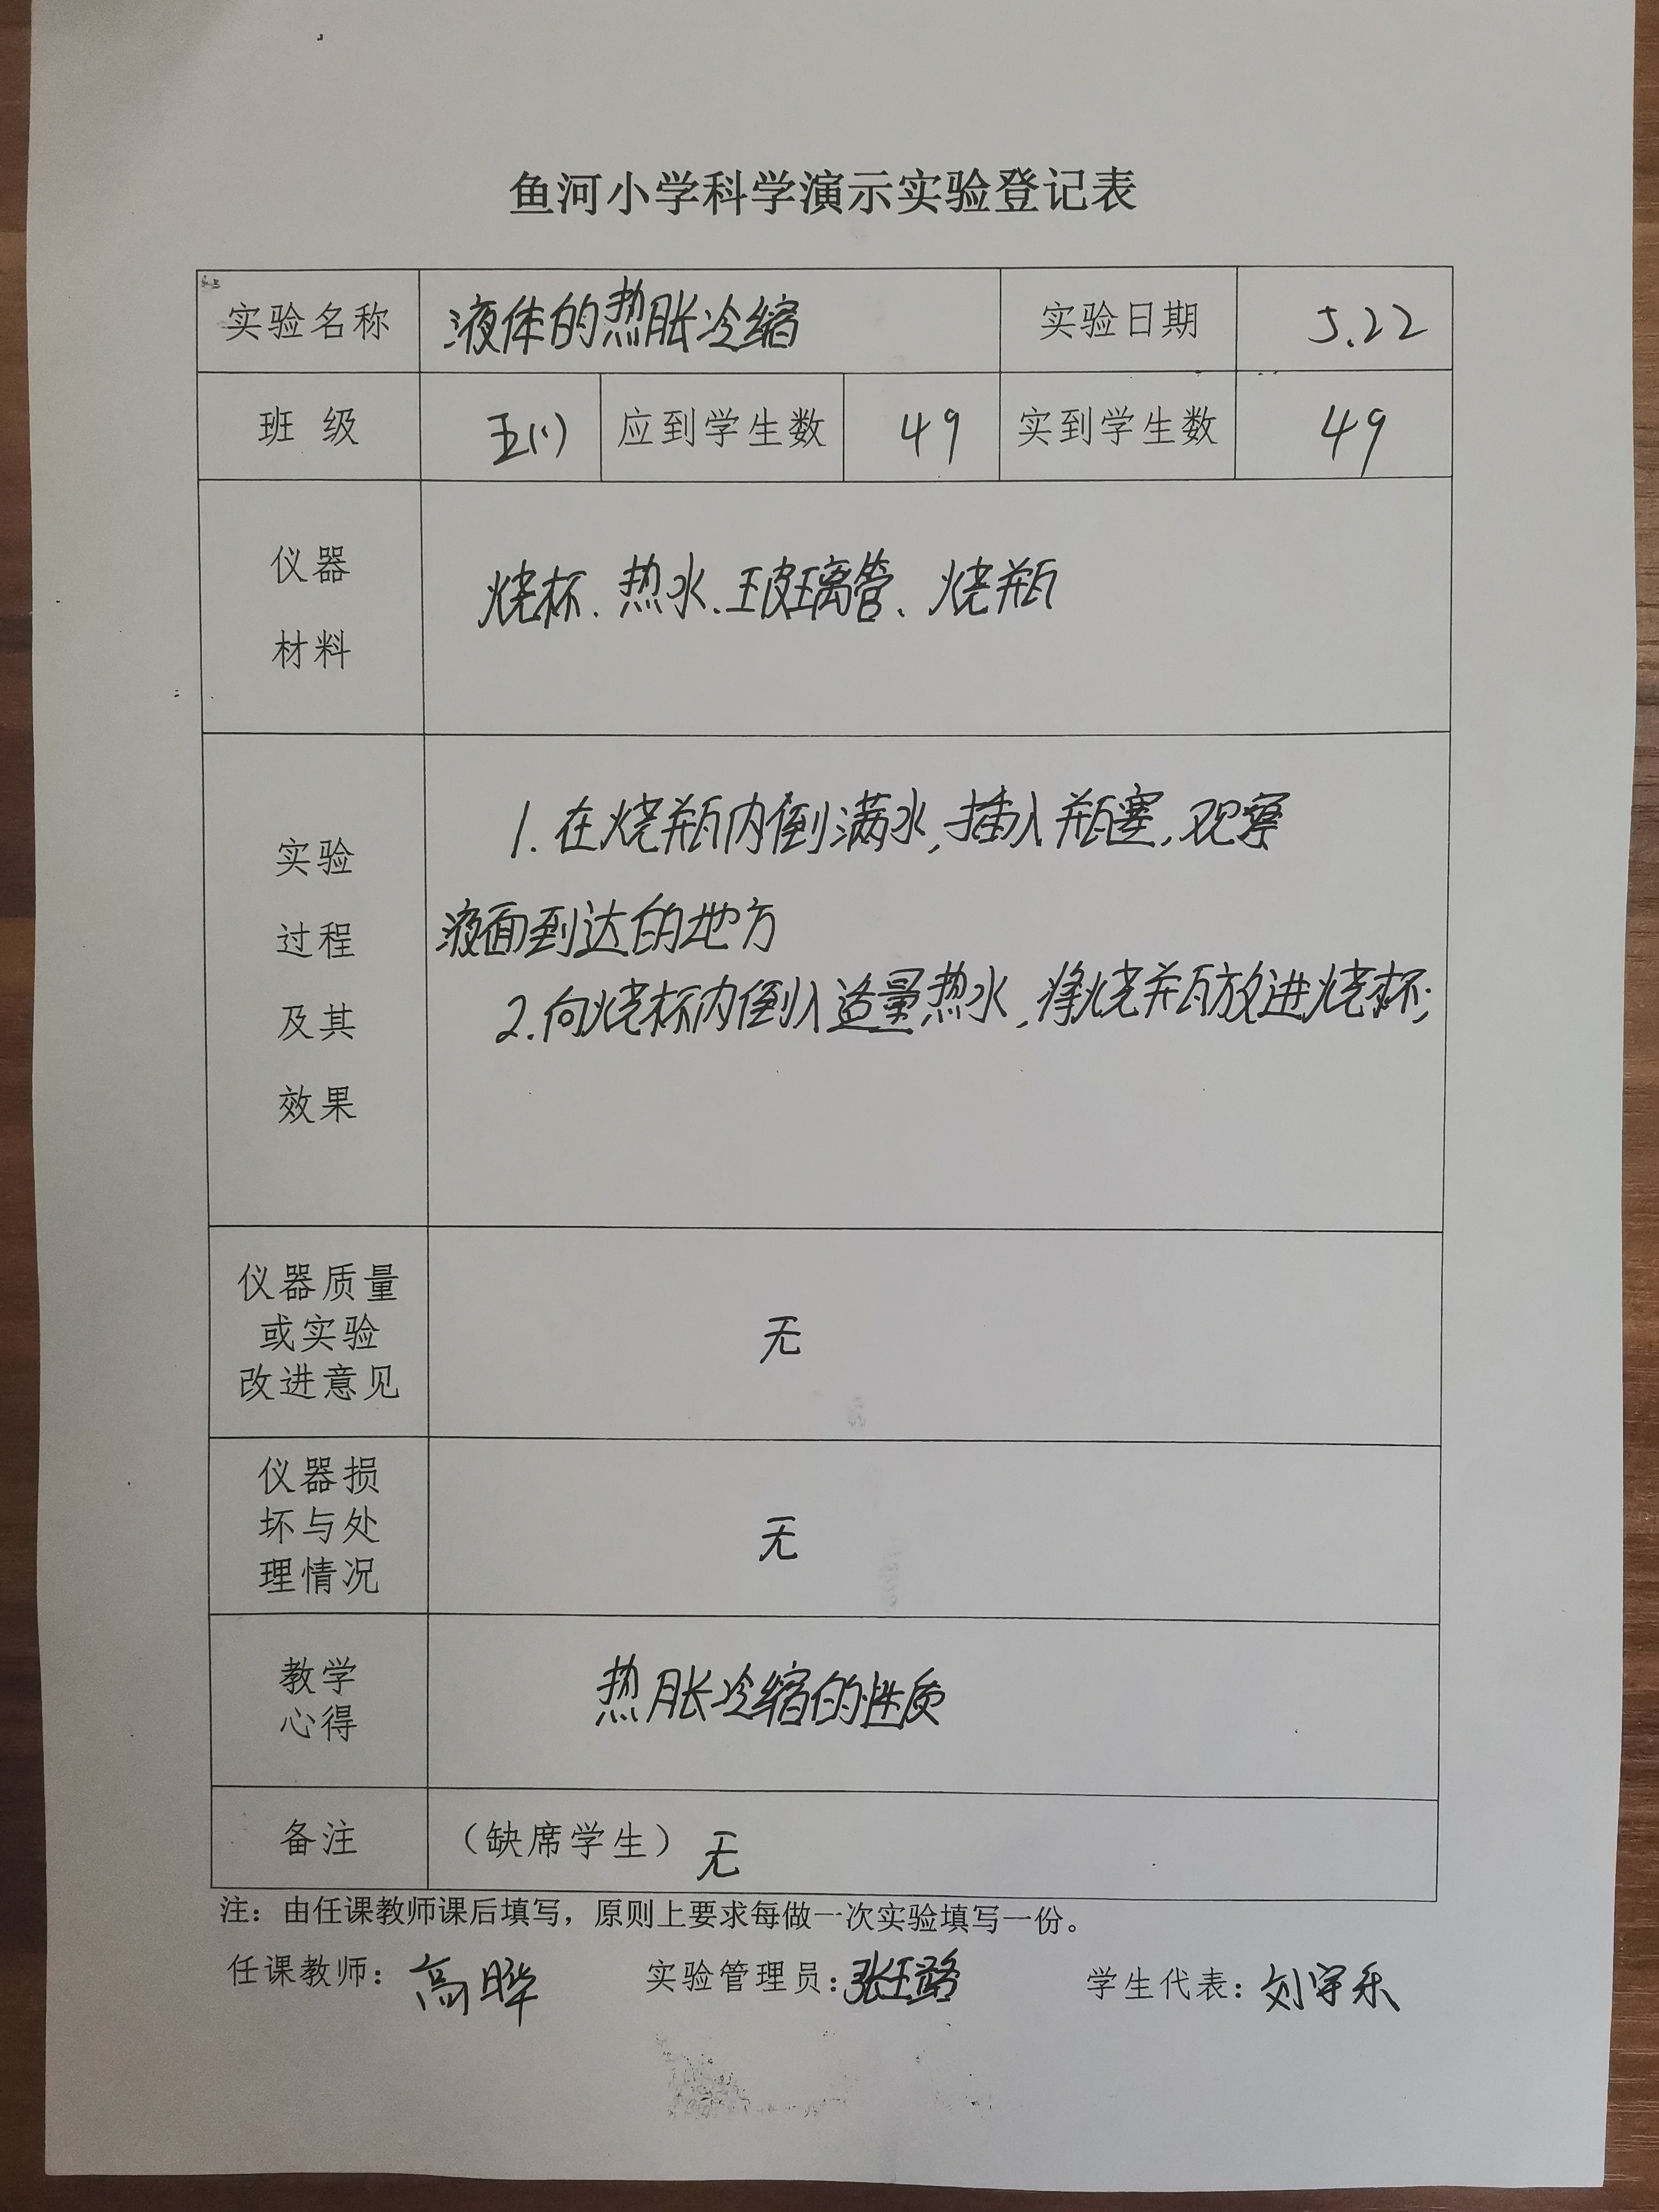 鱼河小学科学演示实验登记表
实验名称 液体的热胀冷缩 实验日期 5.22
班 级 五(1) 应到学生数 49 实到学生数 49
仪器
材料
烧杯、热水、玻璃管、烧瓶
实验
过程
及其
效果
1.在烧瓶内倒满水,插入瓶塞,观察
液面到达的地方
2.向烧杯内倒入适量热水,将烧瓶放进烧杯;
仪器质量
或实验
改进意见
无
仪器损
坏与处
理情况
无
教学
心得
热胀冷缩的性质
备注 （缺席学生） 无
注：由任课教师课后填写，原则上要求每做一次实验填写一份。
任课教师：高晔 实验管理员：张璐 学生代表：刘宇乐